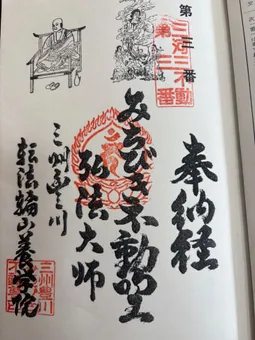 第三番
三河三不動
第三番
奉納経
みちびき不動明王
弘法大師
三州豊川
転法輪山養学院
三州豊川